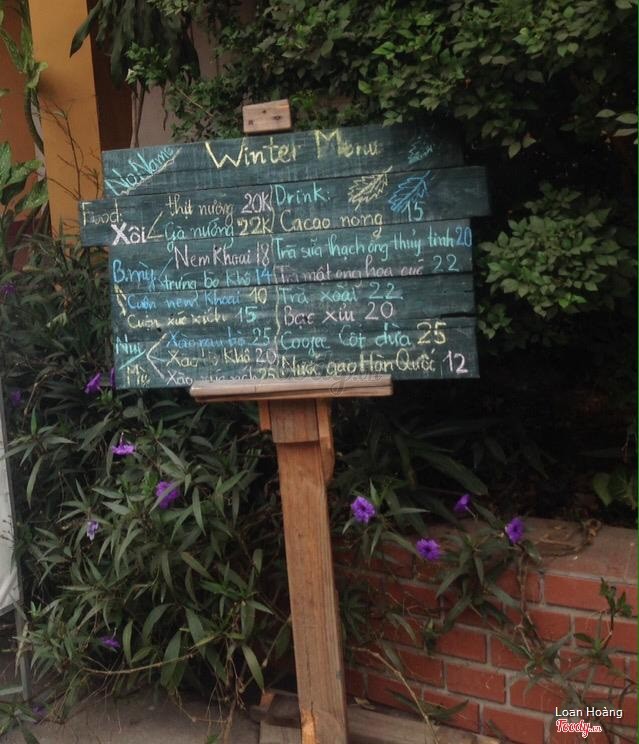 No Name
Winter Menu
Food:
Xôi
thịt nướng 20K
Gà nướng 22K
B.mỳ
Nem Khoai 18
trứng bò khô 14
Cuốn nem Khoai 10
Cuốn xúc xích 15
Nui
Mì
Xào rau bò 25
Xào bò Khô 20
Xào xúc xích 25
Drink:
Cacao nóng 15
Trà sữa thạch ống thủy tinh 20
Trà mật ong hoa cúc 22
Trà xoài 22
Bạc xỉu 20
Coofee Cốt dừa 25
Nước gạo Hàn Quốc 12
Loan Hoàng
Foody.vn